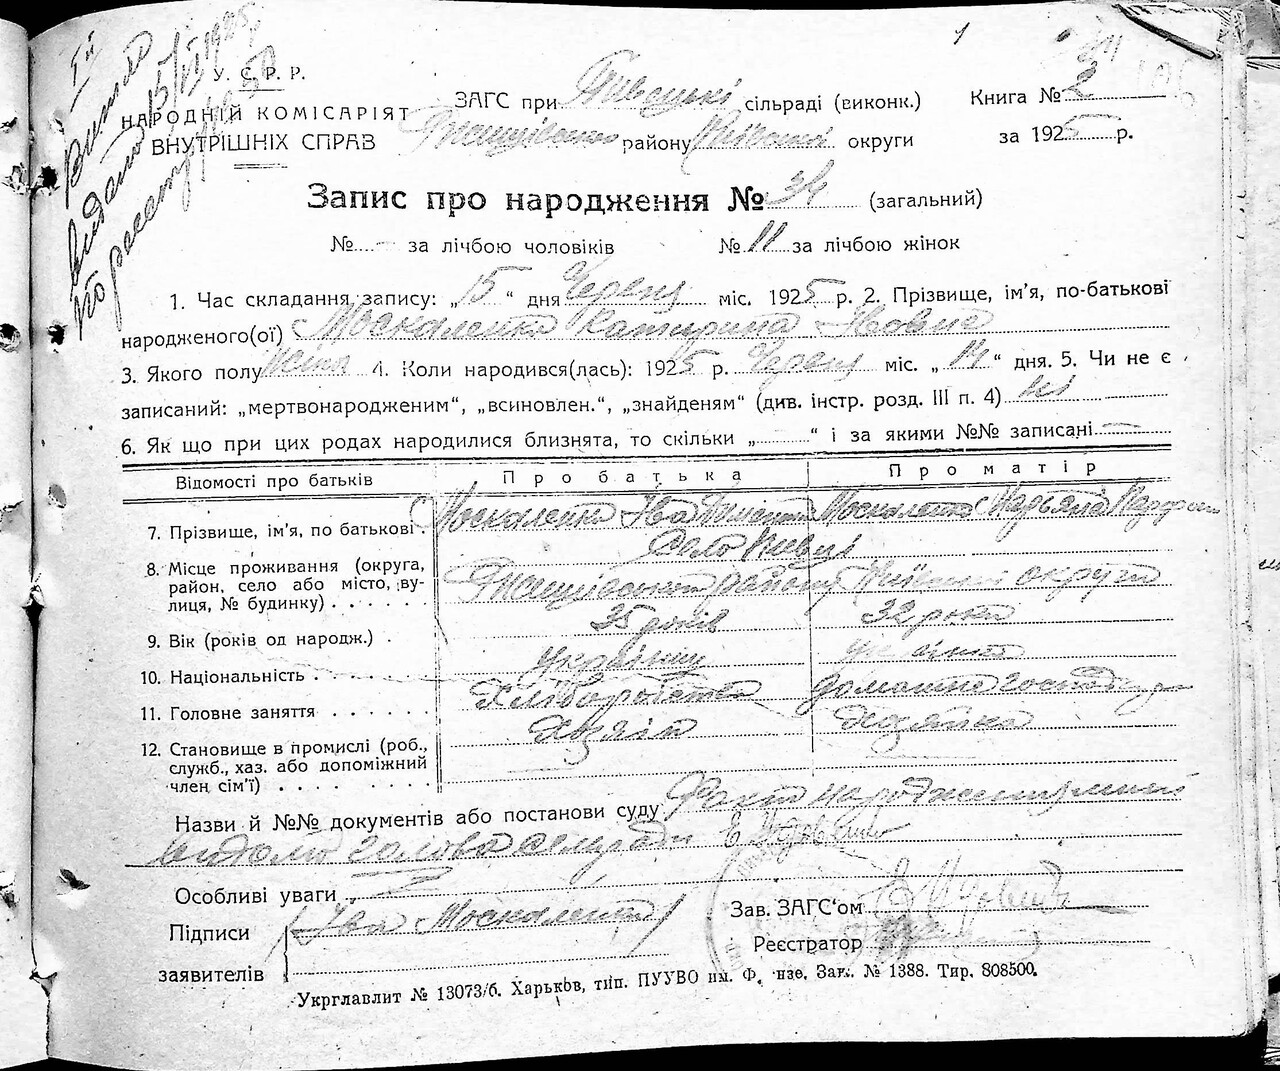 I й
Витяг
видано 15/VI 1925
по реєстру № 50
1
У. С. Р. Р.
НАРОДНІЙ КОМІСАРІЯТ
ВНУТРІШНІХ СПРАВ
ЗАГС при Пивецькі сільраді (виконк.) Книга № 2
Ржищівського району Київської округи за 1925 р.
Запис про народження № 34 (загальний)
№ — за лічбою чоловіків № 11 за лічбою жінок
1. Час складання запису: „15“ дня Червня міс. 1925 р. 2. Прізвище, ім'я, по-батькові
народженого(ої) Москаленко Катерина Івовна
3. Якого полу жіноч 4. Коли народився(лась): 1925 р. Червня міс. „14“ дня. 5. Чи не є
записаний: „мертвонародженим“, „всиновлен.“, „знайденям“ (див. інстр. розд. III п. 4) ні
6. Як що при цих родах народилися близнята, то скільки „ “ і за якими №№ записані —
Відомості про батьків Про батька Про матір
7. Прізвище, ім'я, по батькові. Москаленко Іва Москаленко
Село Півці
8. Місце проживання (округа, район, село або місто, вулиця, № будинку) Ржищівського району Київської округи
9. Вік (років од народж.) 35 років 32 роки
10. Національність Українець
11. Головне заняття Хліборобство домашнє господ
12. Становище в промислі (роб., служб., хаз. або допоміжний член сім'ї) Хазяїн Хозяйка
Назви й №№ документів або постанови суду Факт народження мині
відомо голова сільради
Особливі уваги
Підписи Іва Москаленко
заявителів
Зав. ЗАГС‘ом
Реєстратор
Укрглавлит № 13073/б. Харьков, тип. ПУУВО им. Ф. нзе. Зак. № 1388. Тир. 808500.